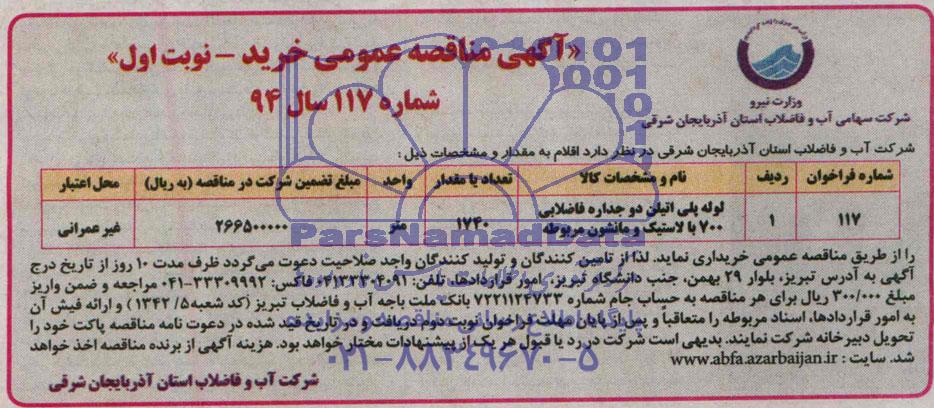 «آگهی مناقصه عمومی خرید - نوبت اول»
شماره ۱۱۷ سال ۹۴
وزارت نیرو
شرکت سهامی آب و فاضلاب استان آذربایجان شرقی
شرکت آب و فاضلاب استان آذربایجان شرقی در نظر دارد اقلام به مقدار و مشخصات ذیل:
شماره فراخوان ردیف نام و مشخصات کالا تعداد یا مقدار واحد مبلغ تضمین شرکت در مناقصه (به ریال) محل اعتبار
۱۱۷ ۱ لوله پلی اتیلن دو جداره فاضلابی ۱۷۴۰ متر ۲۶۶۵۰۰۰۰۰ غیر عمرانی
۷۰۰ با لاستیک و مانشون مربوطه
را از طریق مناقصه عمومی خریداری نماید. لذا از تامین کنندگان و تولید کنندگان واجد صلاحیت دعوت می‌گردد ظرف مدت ۱۰ روز از تاریخ درج
آگهی به آدرس تبریز، بلوار ۲۹ بهمن، جنب دانشگاه تبریز، امور قراردادها، تلفن: ۰۴۱۳۳۳۰۴۰۹۱ فاکس: ۳۳۳۰۹۹۹۲-۰۴۱ مراجعه و ضمن واریز
مبلغ ۳۰۰/۰۰۰ ریال برای هر مناقصه به حساب جام شماره ۷۲۲۱۱۲۴۷۳۳ بانک ملت باجه آب و فاضلاب تبریز (کد شعبه ۱۳۴۲/۵) و ارائه فیش آن
به امور قراردادها، اسناد مربوطه را متعاقباً و پس از پایان مهلت فراخوان نوبت دوم دریافت و در تاریخ قید شده در دعوت نامه مناقصه پاکت خود را
تحویل دبیرخانه شرکت نمایند. بدیهی است شرکت در رد یا قبول هر یک از پیشنهادات مختار خواهد بود. هزینه آگهی از برنده مناقصه اخذ خواهد
شد. سایت: www.abfa.azarbaijan.ir
شرکت آب و فاضلاب استان آذربایجان شرقی
ParsNamadData
۰۲۱-۸۸۳۴۹۶۷۰-۵